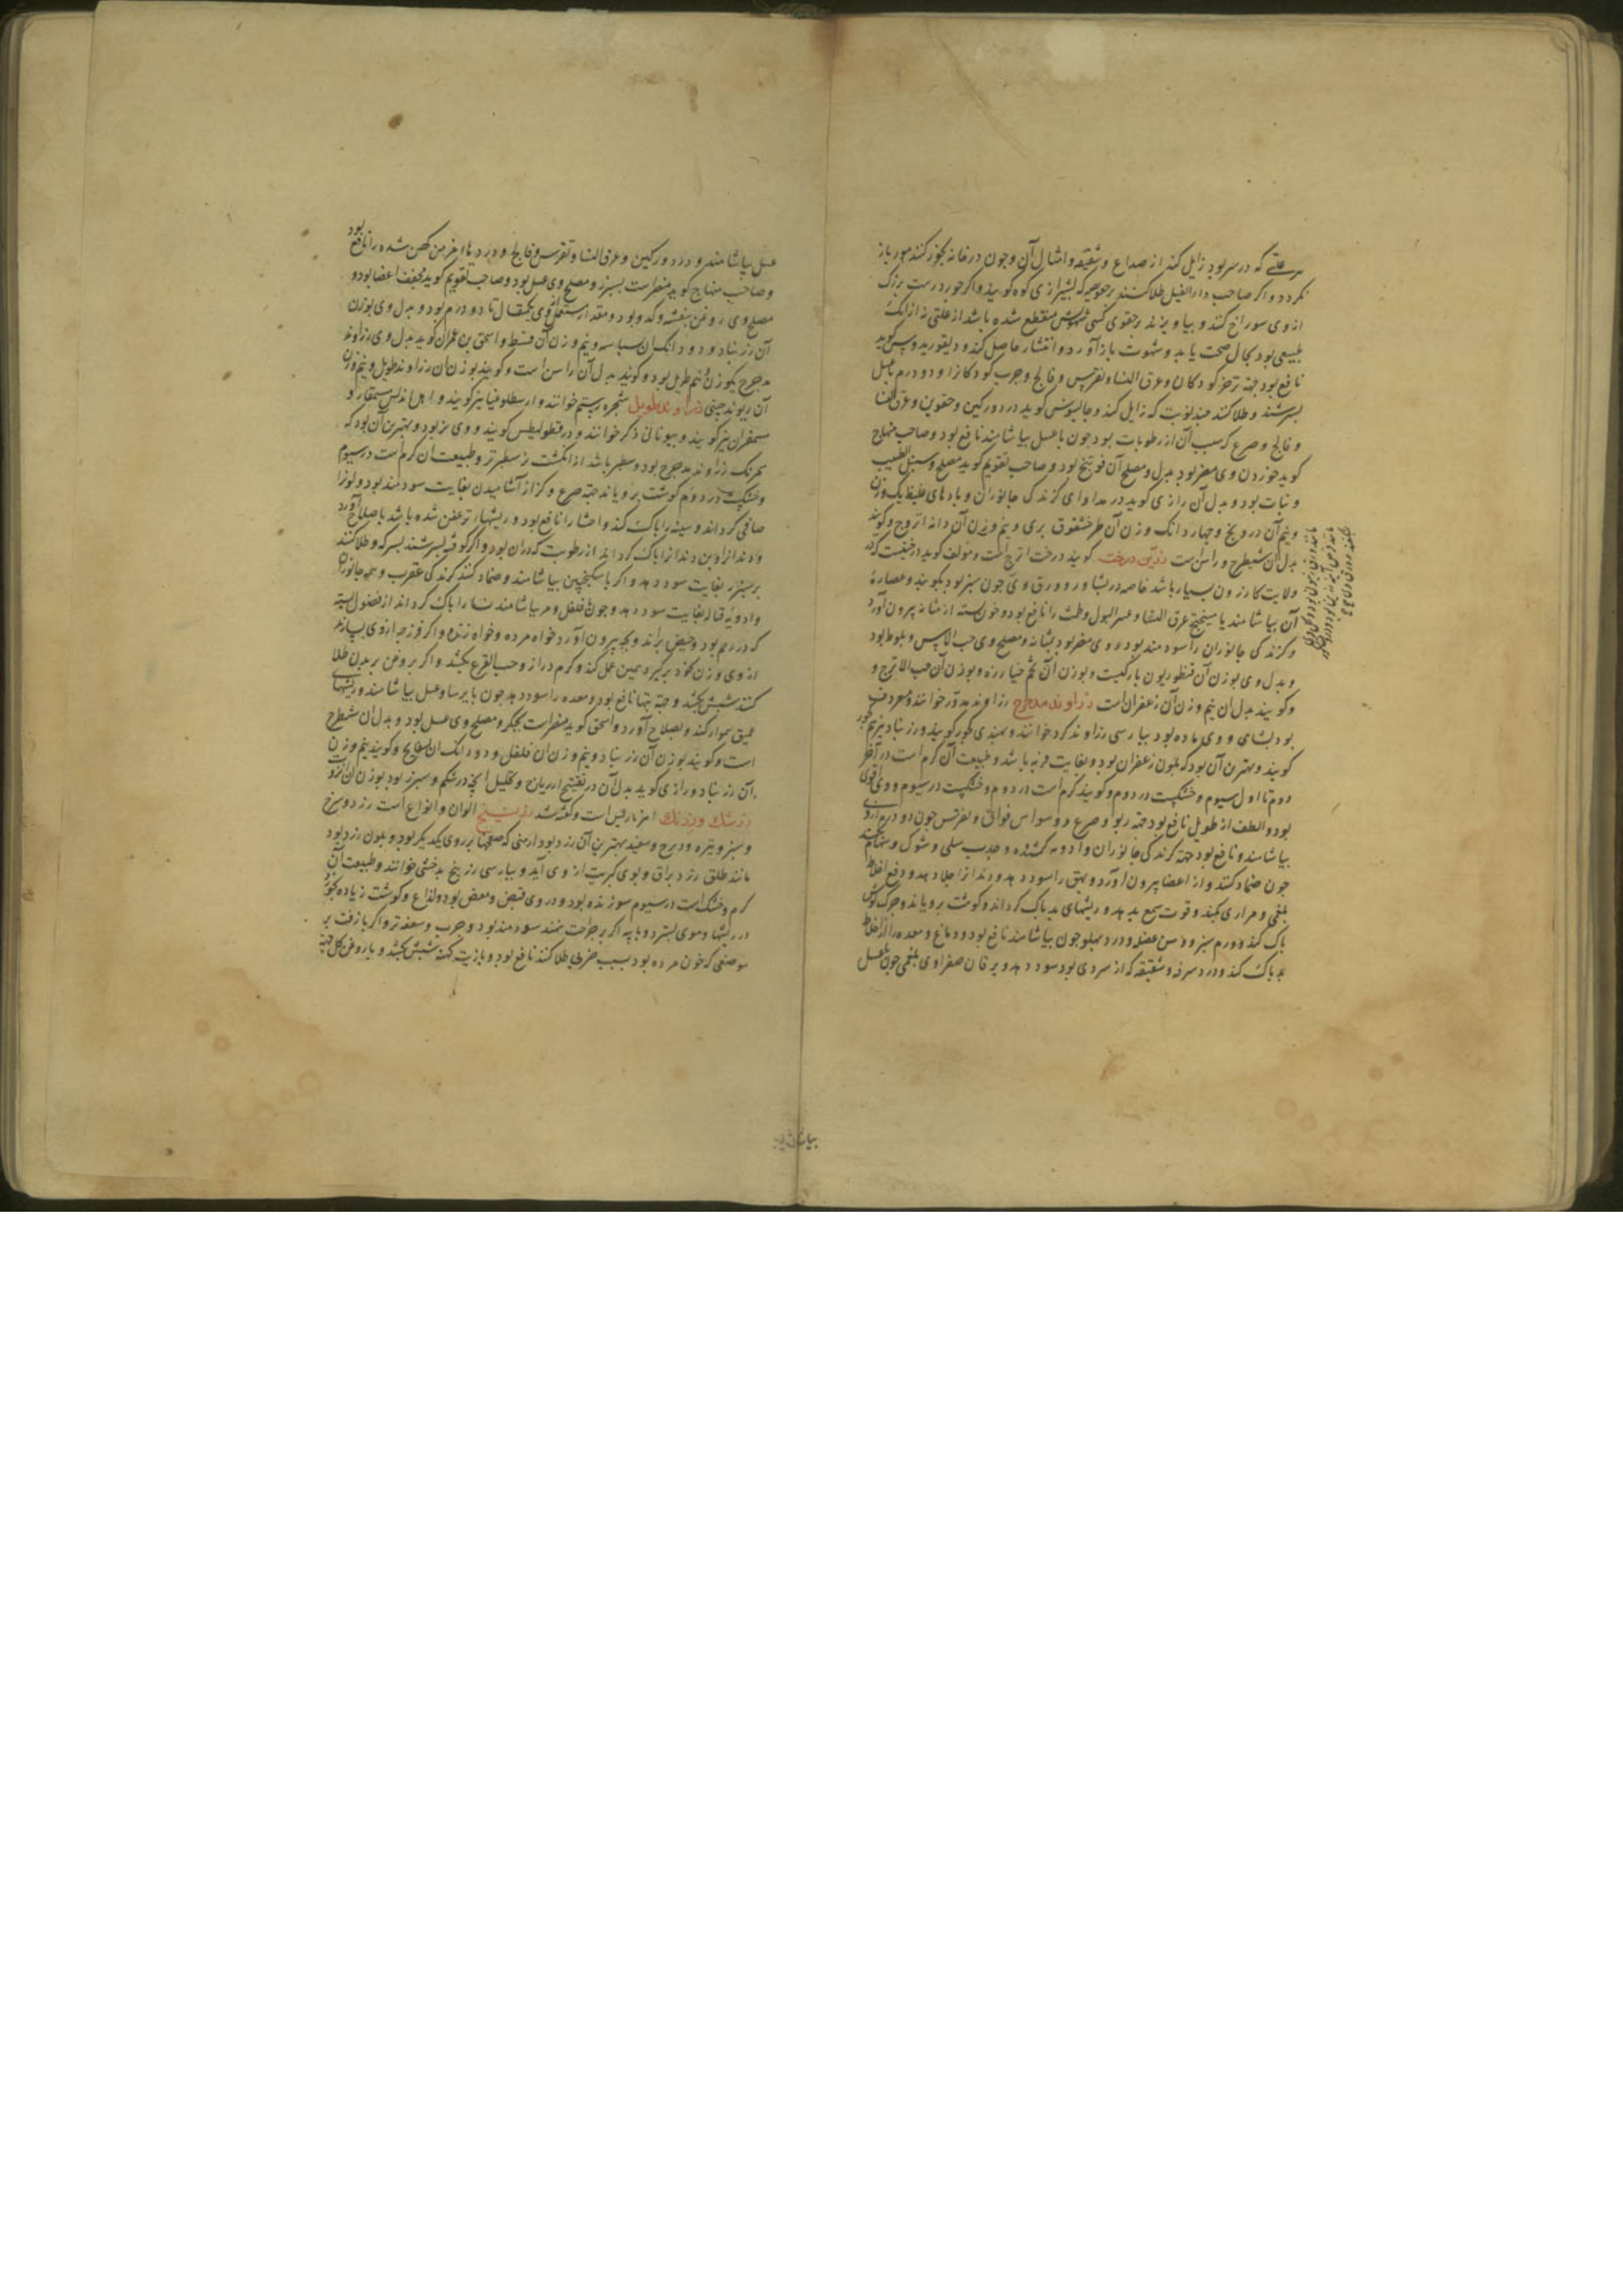 هر علتی که در سر بود زایل کند از صداع و شقیقه و امثال آن و چون در خانه بخور کنند مور باز
نکردد و اگر صاحب دار الفیل طلا کنند
از وی سوراخ کنند و بیاویزند بر حقوی کسی که شهوتش منقطع شده باشد از علتی نه از آنک
طبیعی بود بحال صحت باید و شهوت باز آورد و انتشار حاصل کند و دیقوریدوس گوید
نافع بود جهة کودکان و عرق النسا و نقرس و فالج و جرب کودکانرا و دو درم با عسل
بسرشند و طلا کنند چند نوبت که زایل کند و جالینوس گوید درد ورکین و حقوین و عرق النسا
و فالج و صرع که سبب آن از رطوبات بود چون با عسل بیاشامند نافع بود و صاحب منهاج
گوید خوردن وی مضر بود بدل و مصلح آن فوتنج بود و صاحب تقویم گوید مصلح وی سنبل الطیب
و نبات بود و بدل آن رازی گوید در مداوای گزندگی جانوران و بادهای غلیظ یک وزن
و نیم آن درونج و چهار دانک وزن آن طرخشقوق بری و نیم وزن آن دانه اترج و گویند
بدل آن شیطرج و راسن است زرین درخت گویند درخت اترج است و مؤلف گوید
ولایت کازرون بسیار باشد خاصه در بشاور و ورق وی چون سبز بود بکوبند و عصاره
آن بیاشامند با میبختج عرق النسا و عسر البول و طمث را نافع بود و خون بسته از مثانه بیرون آورد
و گزندگی جانوران را سودمند بود و وی مضر بود بمثانه و مصلح وی حب الآس و بلوط بود
و بدل وی بوزن آن قنطوریون باریکست و بوزن آن تخم خیارزه و بوزن آن حب الاترج و
و گویند بدل آن نیم وزن آن زعفران است زراوند مدحرج زراوند مدور خوانند و معروف
بود بشامی و وی ماده بود بپارسی زراوند کرد خوانند و بهندی کجور گویند و زرنباد نیز
گویند و بهترین آن بود که بلون زعفران بود و بغایت فربه باشد و طبیعت آن گرم است در آخر
دوم تا اول سیوم و خشکست در دوم و گویند گرم است در دوم و خشکست در سیوم و وی اقوی
بود و الطف از طویل نافع بود جهة ربو و صرع و وسواس و فواق و نقرس چون دو درم از وی
بیاشامند و نافع بود جهة گزندگی جانوران و ادویه کشنده و جذب سلی و شوک و سهام کند
چون ضماد کنند و از اعضا بیرون آورد و بهق را سود دهد و دندانرا جلا دهد و دفع اخلاط
بلغمی و مراری بکند و قوت سمع بدهد و ریشهای بد پاک گرداند و گوشت برویاند و چرک گوش
پاک کند و ورم سپرز و وهن عضل و درد پهلو چون بیاشامند نافع بود و دماغ و معده را از اخلاط
بد پاک کند و درد سر و شقیقه که از سردی بود سود دهد و یرقان صفراوی و بلغمی چون با عسل
بیاشامند
عسل بیاشامند و درد ورکین و عرق النسا و نقرس و فالج و دردهای مزمن کهن شده را نافع بود
و صاحب منهاج گوید مضر است بسپرز و مصلح وی عسل بود و صاحب تقویم گوید مجفف اعضا بود و
مصلح وی روغن بنفشه و کدو بود و مقدار مستعمل از وی یکمثقال تا دو درم بود و بدل وی بوزن
آن زرنباد و دو دانک آن بسباسه و نیم وزن آن قسط و اسحق بن عمران گوید بدل وی زراوند
مدحرج یکوزن و نیم طویل بود و گویند بدل آن راسن است و گویند بوزن آن زراوند طویل و نیم وزن
آن ریوند چینی زراوند طویل شجره رستم خوانند و ارسطلوخیا نیز گویند و اهل اندلس مسمقار و
مسمقران نیز گویند و بیونانی ذکر خوانند و در قطولیطس گویند و وی نر بود و بهترین آن بود که
برنگ زراوند مدحرج بود و سطبر باشد از انگشت سطبرتر و طبیعت آن گرم است در سیوم
و خشکست در دوم گوشت برویاند جهة صرع و کزاز آشامیدن بغایت سودمند بود و لونرا
صافی گرداند و سینه را پاک کند و احشا را نافع بود و ریشها که عفن شده باشد باصلاح آورد
و دندانرا و بن دندانرا پاک گرداند از رطوبت که در آن بود و اگر کوفته بسرشند بسرکه و طلا کنند
بر سپرز بغایت سود دهد و اگر با سکنجبین بیاشامند و ضماد کنند گزندگی عقرب و همه جانوران
و ادویه قتاله بغایت سود دهد و چون با فلفل و مر بیاشامند نسا را پاک گرداند از فضول بسته
که در رحم بود و حیض براند و بچه بیرون آورد خواه مرده و خواه زنده و اگر فرزجه از وی بسازند
از وی و زن بخود برگیرد همین عمل کند و کرم دراز و حب القرع بکشد و اگر بروغن بر بدن طلا
کنند شپش بکشد و جهة تبها نافع بود و معده را سود دهد چون با ایرسا و عسل بیاشامند و ریشهای
عمیق هموار کند و بصلاح آورد و اسحق گوید مضر است بجگر و مصلح وی عسل بود و بدل آن شیطرج
است و گویند بوزن آن زرنباد و نیم وزن آن فلفل و دو دانک آن و گویند نیم وزن
آن زرنباد و رازی گوید بدل آن در تفتیح و ریاح و تحلیل آنچه در شکم و سپرز بود بوزن آن
زرشک و زرنک امبرباریس است و گفته شد زرنیخ الوان و انواع است زرد و سرخ
و سبز و تیره و سفید بهترین آن زرد بود ارمنی که صفحها بر روی یکدیگر بود و بلون زرد بود
مانند طلق زرد براق و بوی کبریت از وی آید و بپارسی زرنیخ بدخشی خوانند و طبیعت آن
گرم و خشک است در سیوم سوزنده بود و در وی قبض و معفن بود و لذاع و گوشت زیاده بخورد
در ریشها و موی بسترد و با پیه اگر بر جراحت نهند سودمند بود و جرب و سعفه تر و اگر با زفت بر
موضعی که خون مرده بود بسبب ضربی طلا کنند نافع بود و با زیت کهنه شپش بکشد و با روغن گل جهة